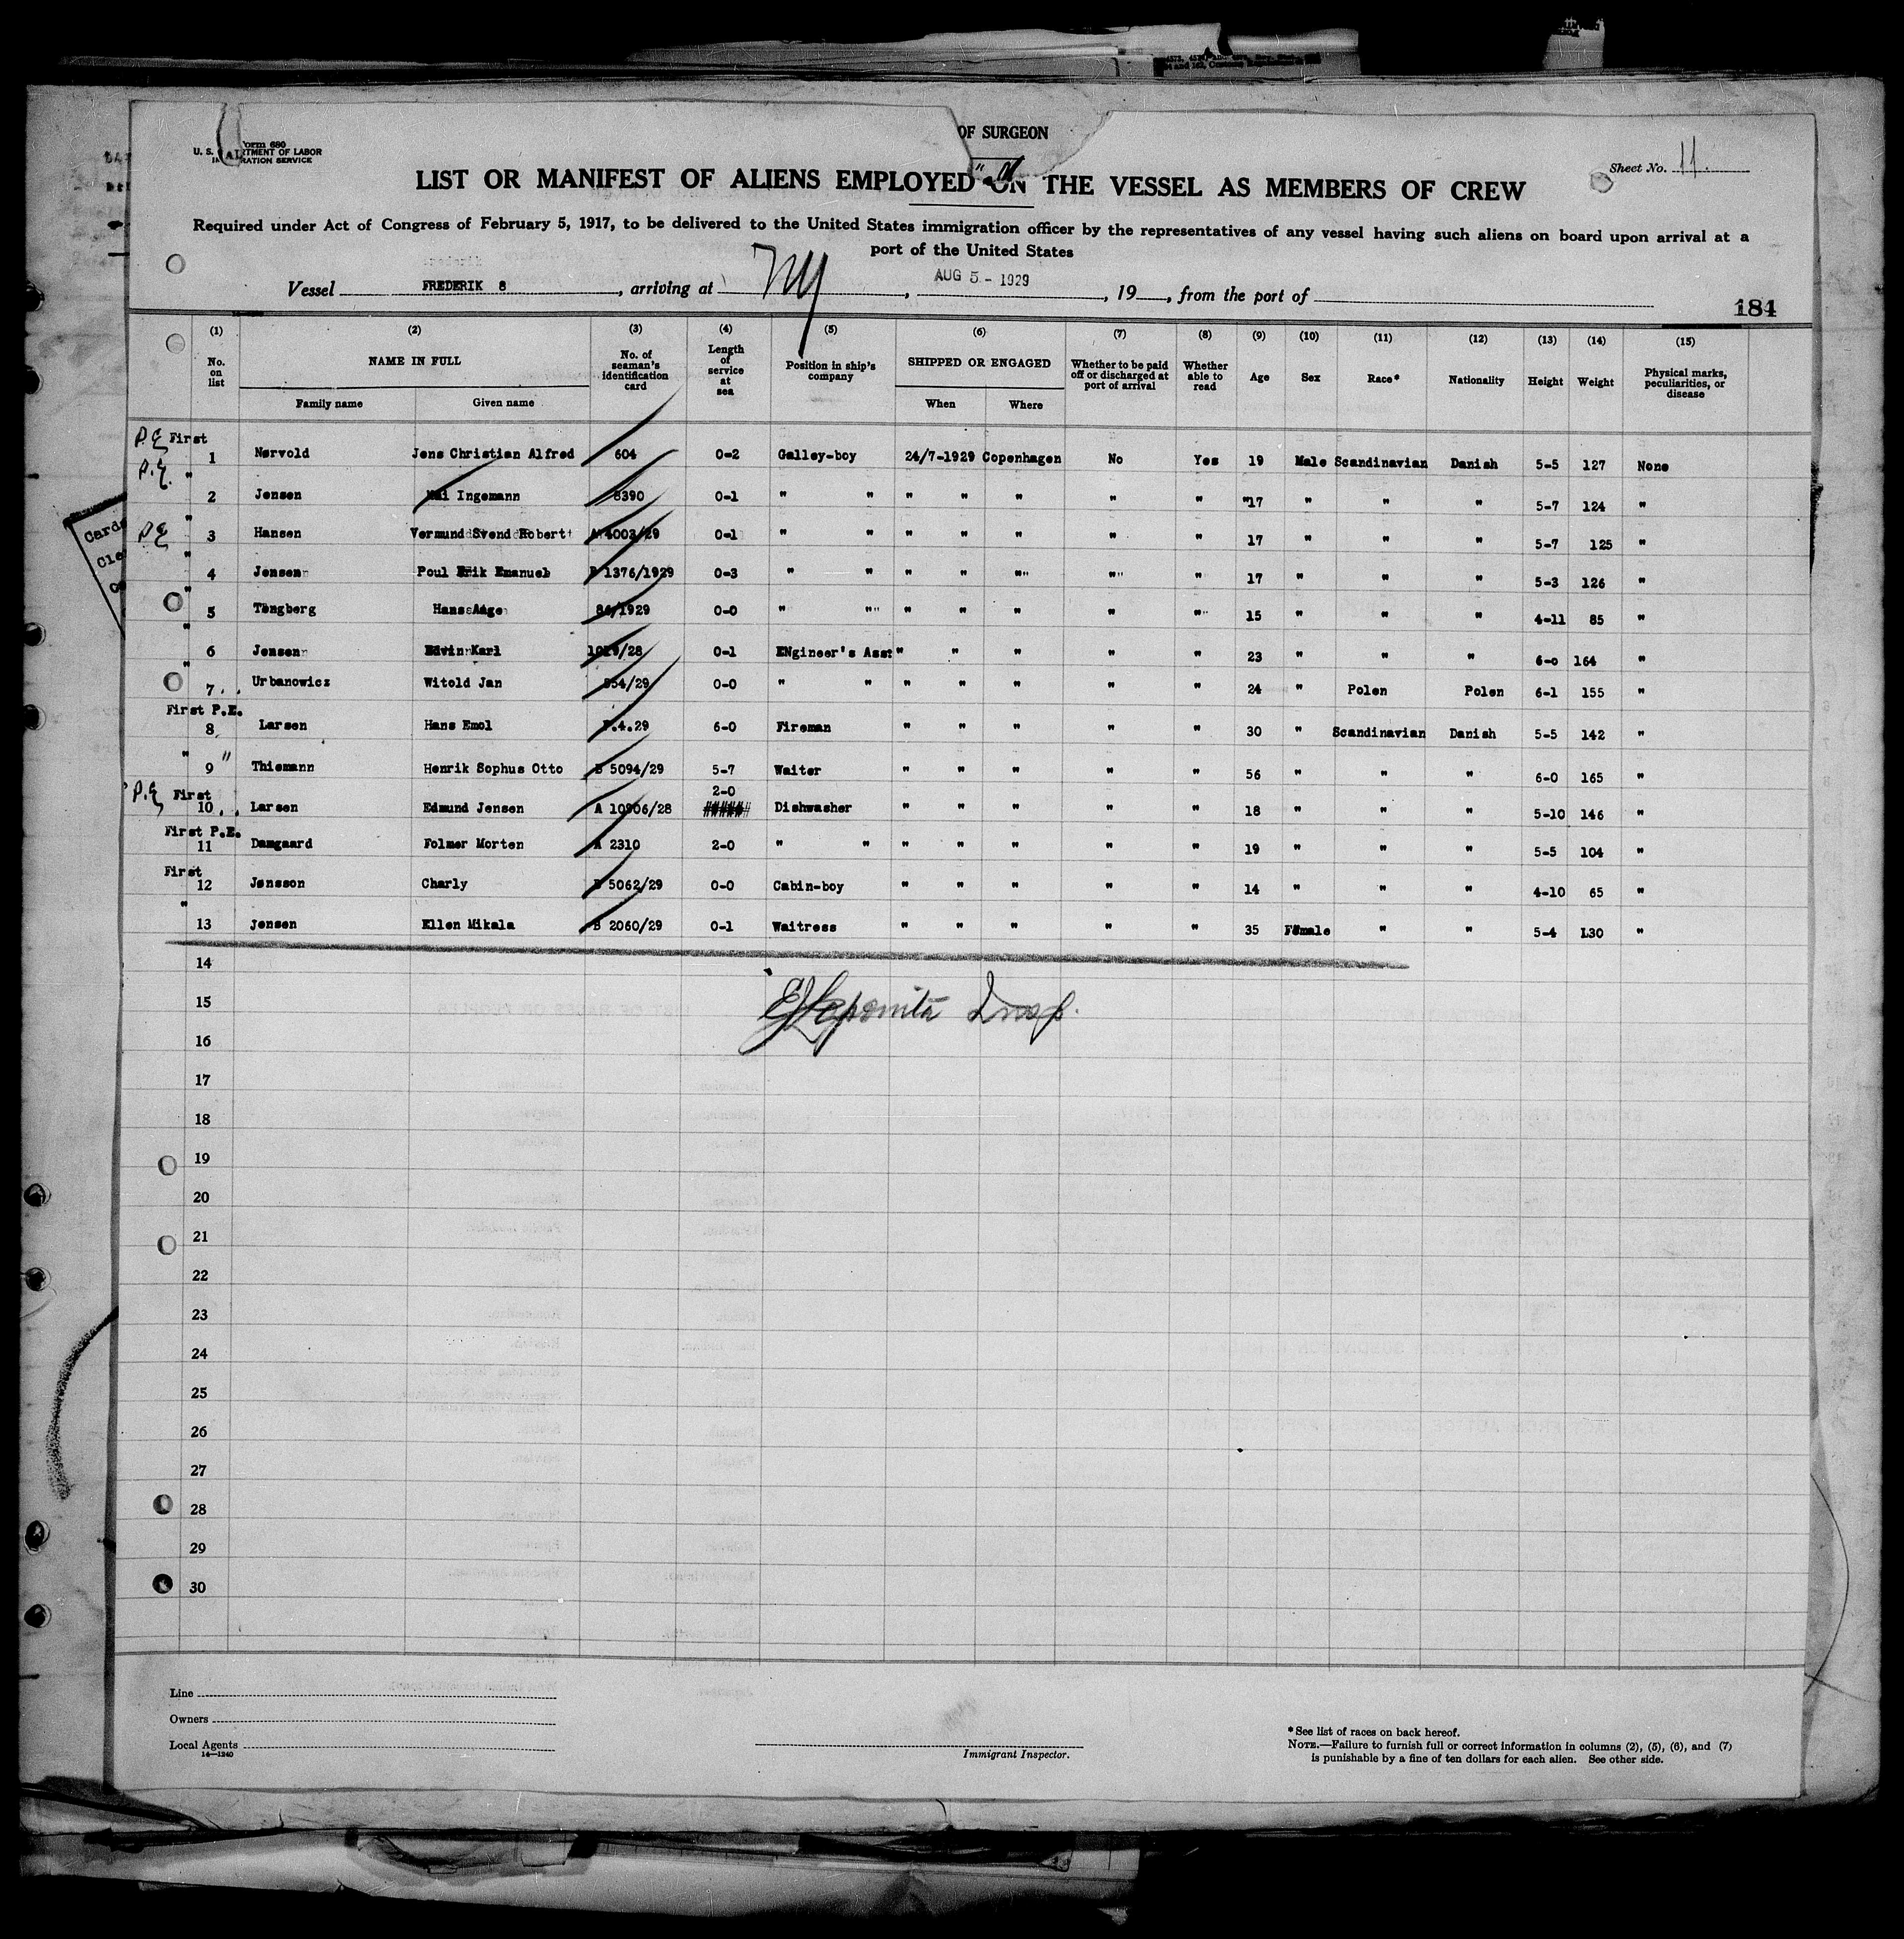 OF SURGEON
Form 680
U. S. DEPARTMENT OF LABOR
IMMIGRATION SERVICE
Sheet No. 11.
LIST OR MANIFEST OF ALIENS EMPLOYED ON THE VESSEL AS MEMBERS OF CREW
Required under Act of Congress of February 5, 1917, to be delivered to the United States immigration officer by the representatives of any vessel having such aliens on board upon arrival at a
port of the United States
Vessel FREDERIK 8, arriving at NY, AUG 5 - 1929, 19__, from the port of
184
(1) (2) (3) (4) (5) (6) (7) (8) (9) (10) (11) (12) (13) (14) (15)
No. on list NAME IN FULL No. of seaman's identification card Length of service at sea Position in ship's company SHIPPED OR ENGAGED Whether to be paid off or discharged at port of arrival Whether able to read Age Sex Race* Nationality Height Weight Physical marks, peculiarities, or disease
Family name Given name When Where
P.E. First
1 Nørvold Jens Christian Alfred 604 0-2 Galley-boy 24/7-1929 Copenhagen No Yes 19 Male Scandinavian Danish 5-5 127 None
P.E. "
2 Jensen Kai Ingemann 8390 0-1 " " " " " " " "17 " " " 5-7 124 "
P.E. "
3 Hansen Vermund Svend Robert A 4003/29 0-1 " " " " " " " 17 " " " 5-7 125 "
"
4 Jensen Poul Erik Emanuel B 1376/1929 0-3 " " " " " " " 17 " " " 5-3 126 "
"
5 Tengberg Hans Aage 84/1929 0-0 " " " " " " " 15 " " " 4-11 85 "
"
6 Jensen Edvin Karl 1019/28 0-1 ENgineer's Asst " " " " " 23 " " " 6-0 164 "
"
7 Urbanowicz Witold Jan 854/29 0-0 " " " " " " " 24 " Polen Polen 6-1 155 "
First P.E.
8 Larsen Hans Emol F.4.29 6-0 Fireman " " " " " 30 " Scandinavian Danish 5-5 142 "
" "
9 Thiemann Henrik Sophus Otto B 5094/29 5-7 Waiter " " " " " 56 " " " 6-0 165 "
P.E. First 2-0
10 Larsen Edmund Jensen A 10906/28 Dishwasher " " " " " 18 " " " 5-10 146 "
First P.E.
11 Damgaard Folmer Morten A 2310 2-0 " " " " " " " 19 " " " 5-5 104 "
First
12 Jønsson Charly B 5062/29 0-0 Cabin-boy " " " " " 14 " " " 4-10 65 "
"
13 Jensen Ellen Mikala B 2060/29 0-1 Waitress " " " " " 35 Female " " 5-4 130 "
14
15
16
17
18
19
20
21
22
23
24
25
26
27
28
29
30
Line
Owners
Local Agents
14—1240
Immigrant Inspector.
*See list of races on back hereof.
NOTE.—Failure to furnish full or correct information in columns (2), (5), (6), and (7)
is punishable by a fine of ten dollars for each alien. See other side.